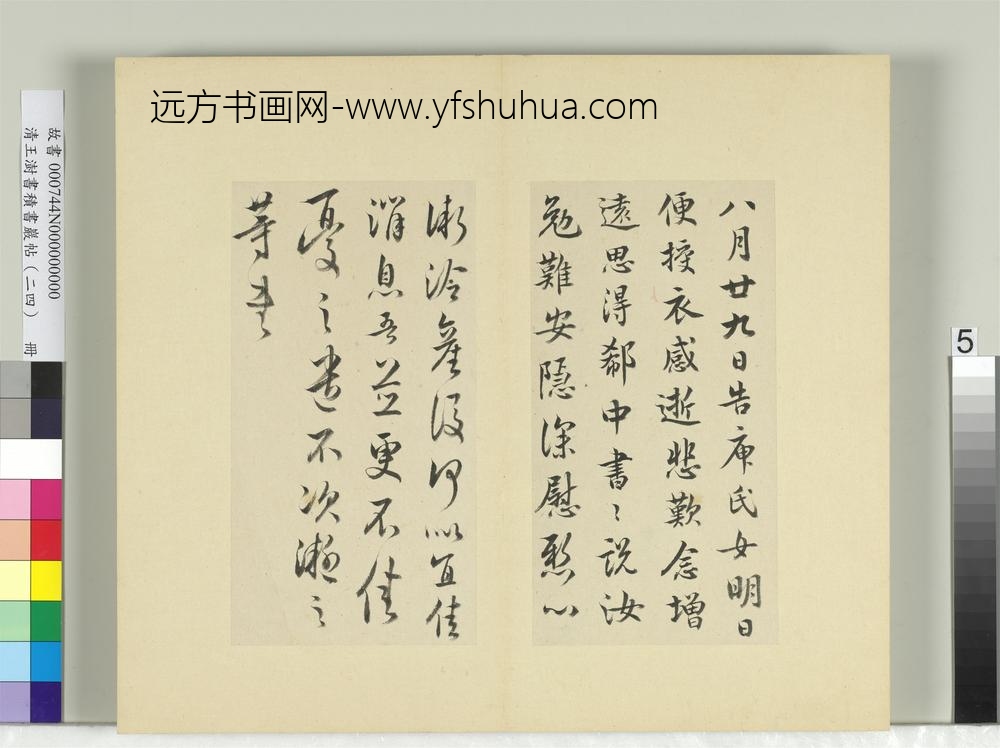 远方书画网-www.yfshuhua.com
八月廿九日告庾氏女明日
便授衣感逝悲歎念增
遠思得郗中書〻說汝
勉難安隱深慰懸心
漸冷產後何似宜佳
消息吾並更不佳
憂之遣不次
之
等書
故書 000744N000000000
清王澍書積書巖帖(二四) 冊
5